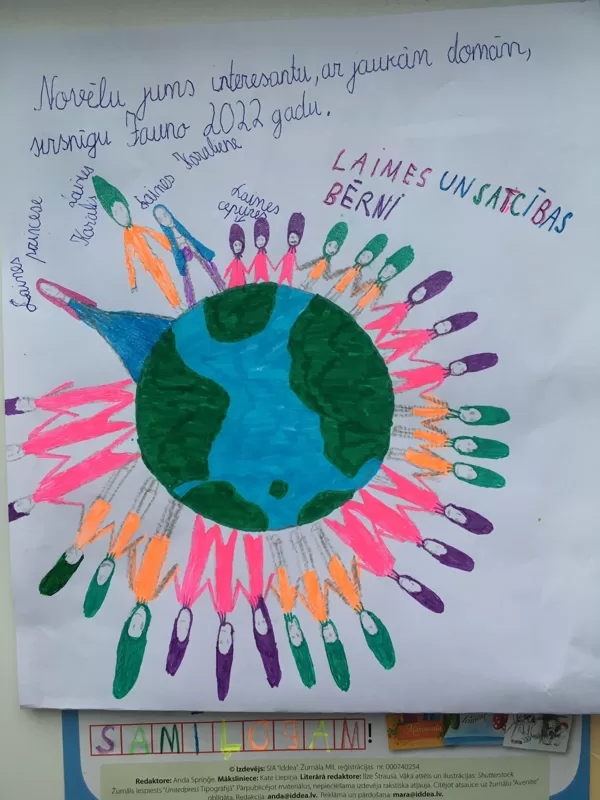 Novēlu jums interesantu, ar jaukām domām,
sirsnīgu Jauno 2022 gadu.
Laimes princese
Laimes Karalis
Laimes Karaliene
Laimes cepures
LAIMES UN SATCĪBAS
BĒRNI
SAMĪĻOJAM!
© Izdevējs: SIA "Iddea" Žurnāla MiL reģistrācijas nr. 000740254
Redaktore: Anda Spriņģe. Māksliniece: Kate Liepiņa. Literārā redaktore: Ilze Strausa. Vāka attēls un ilustrācijas: Shutterstock
Žurnāls iespiests "Unitedpress Tipogrāfijā" Pārpublicējot materiālus, nepieciešama izdevēja rakstiska atļauja. Citējot atsauce uz žurnālu "Avenīte"
obligāta. Redakcija: anda@iddea.lv. Reklāma un pārdošana: mara@iddea.lv.